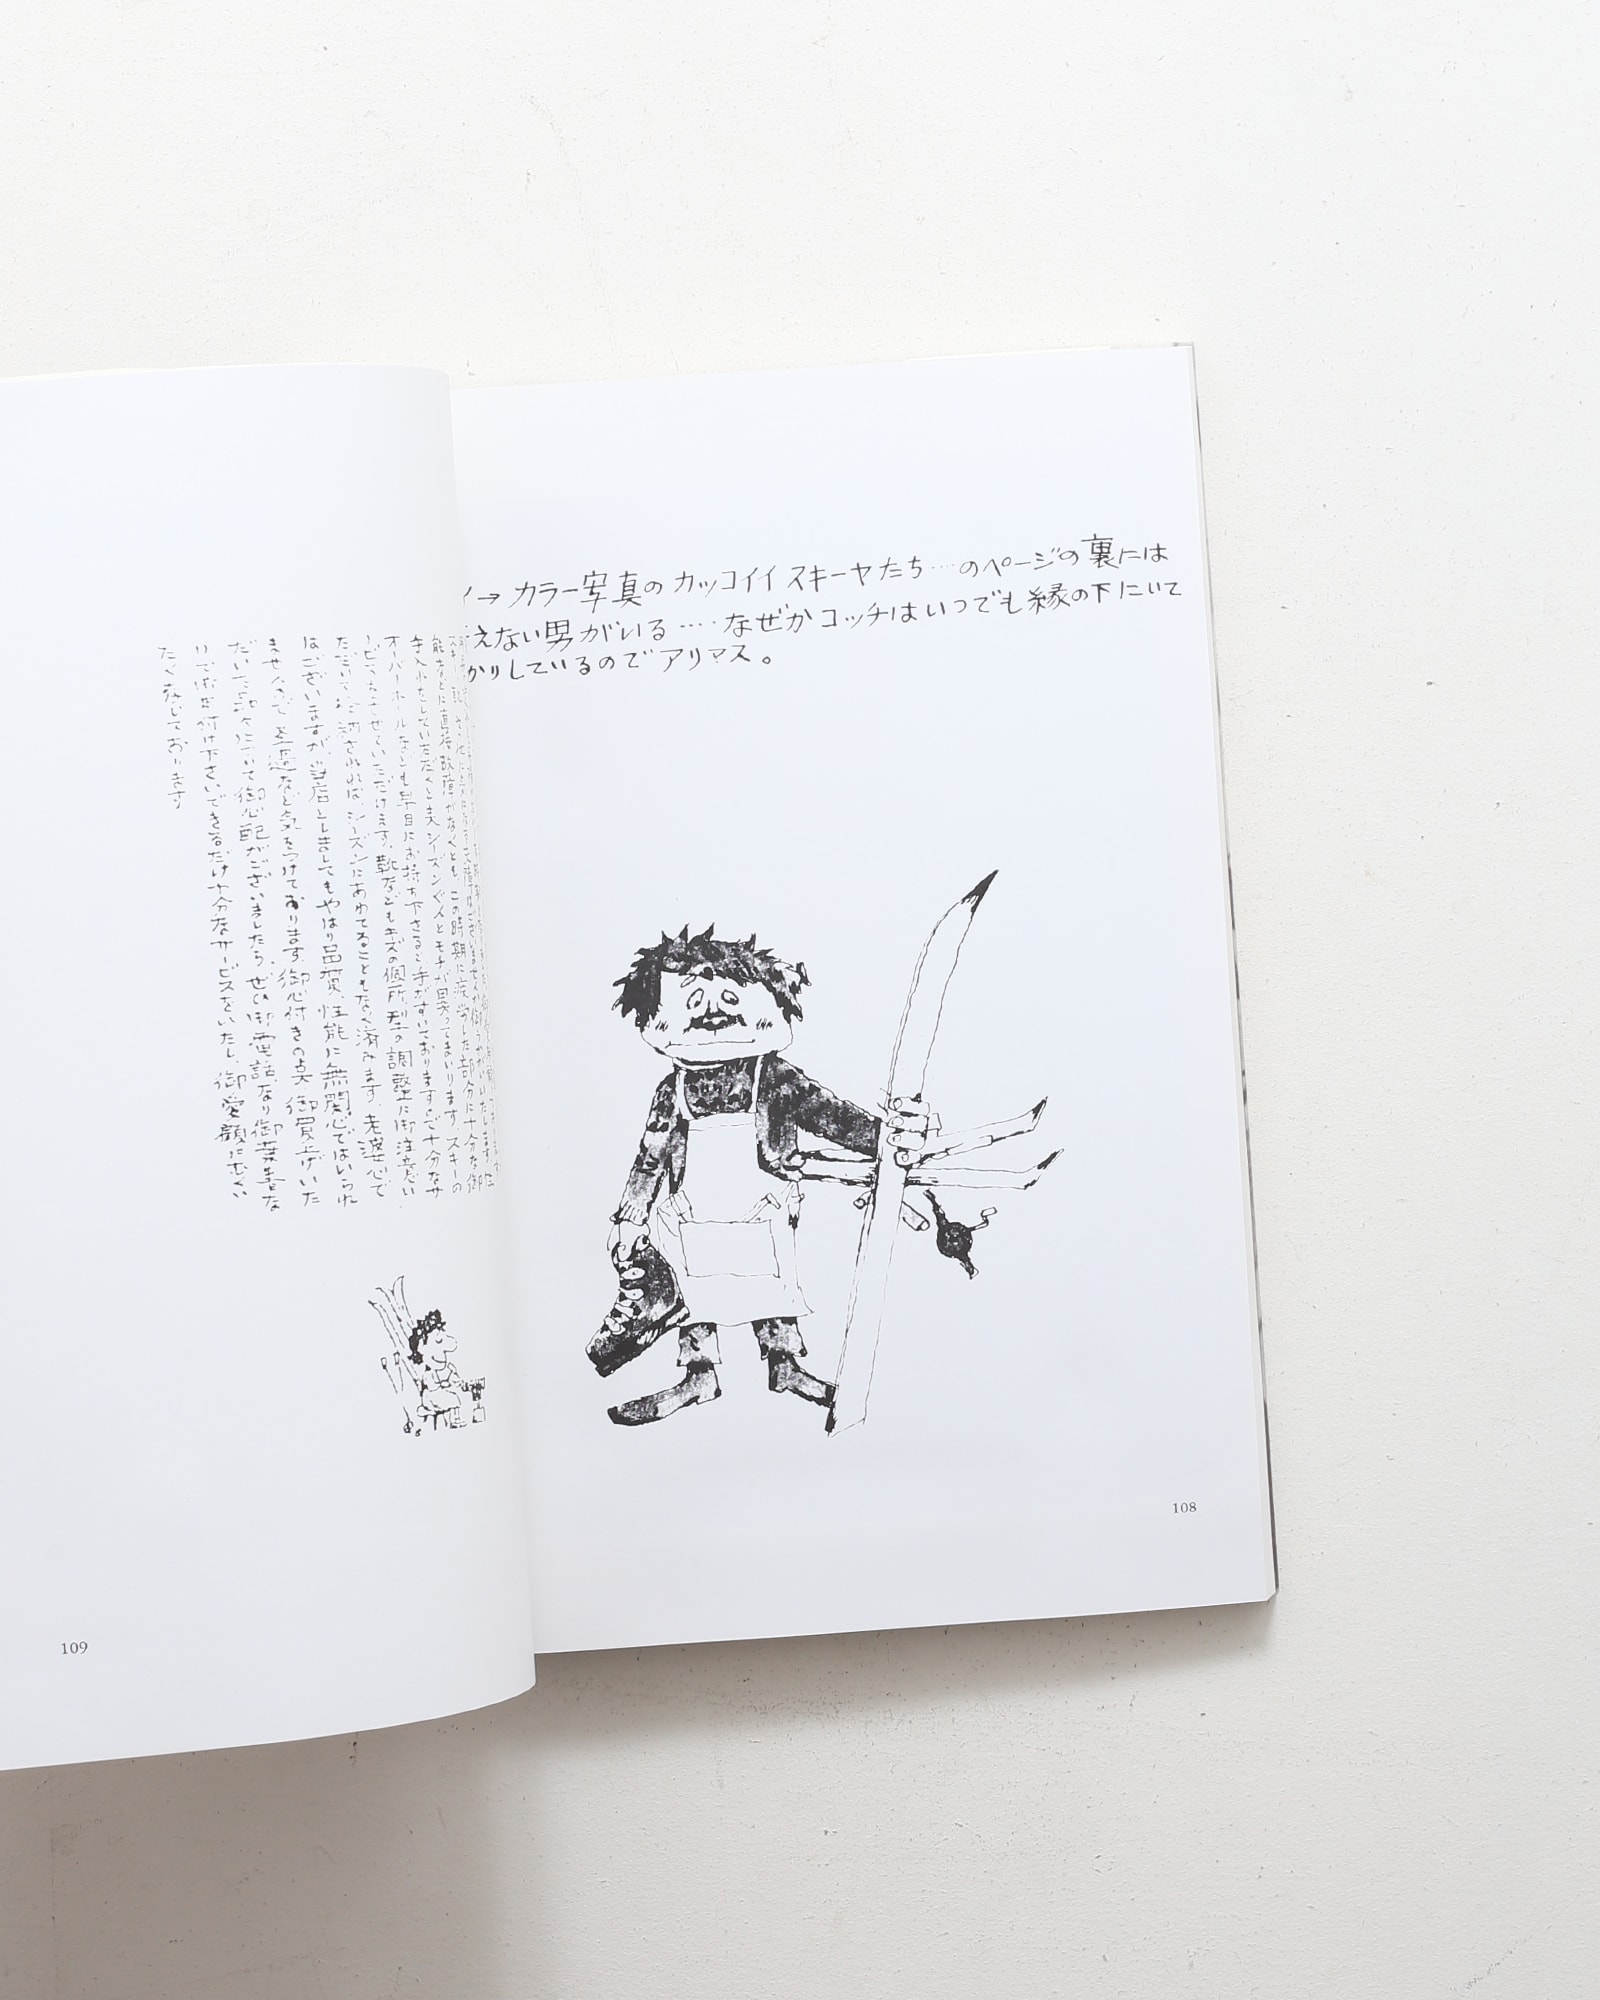 →カラー写真のカッコイイスキーヤたち‥‥のページの裏には
えない男がいる‥‥なぜかコッチはいつでも縁の下にいて
かりしているのでアリマス。
108
能などに直接故障がなくとも、この時期に疲労した部分に十分な御
手入れをしていただくと来シーズンぐんとモチが異ってまいります。スキーの
オーバーホールなども早目にお持ち下さると手がすいておりますので十分なサ
ービスをさせていただけます。靴などもキズの個所、型の調整に御注意い
ただいて御納されればシーズンにあわてることもなく済みます。老婆心で
はございますが、当店としましてもやはり品質、性能に無関心ではいられ
ませんので、足週など気をつけております。御心付きの点、御買上げいた
だいた品々について御心配がございましたら、ぜひ御電話なり御葉書な
りで御申付け下さい。できるだけ十分なサービスをいたし、御愛顧にむくい
たく存じております
109